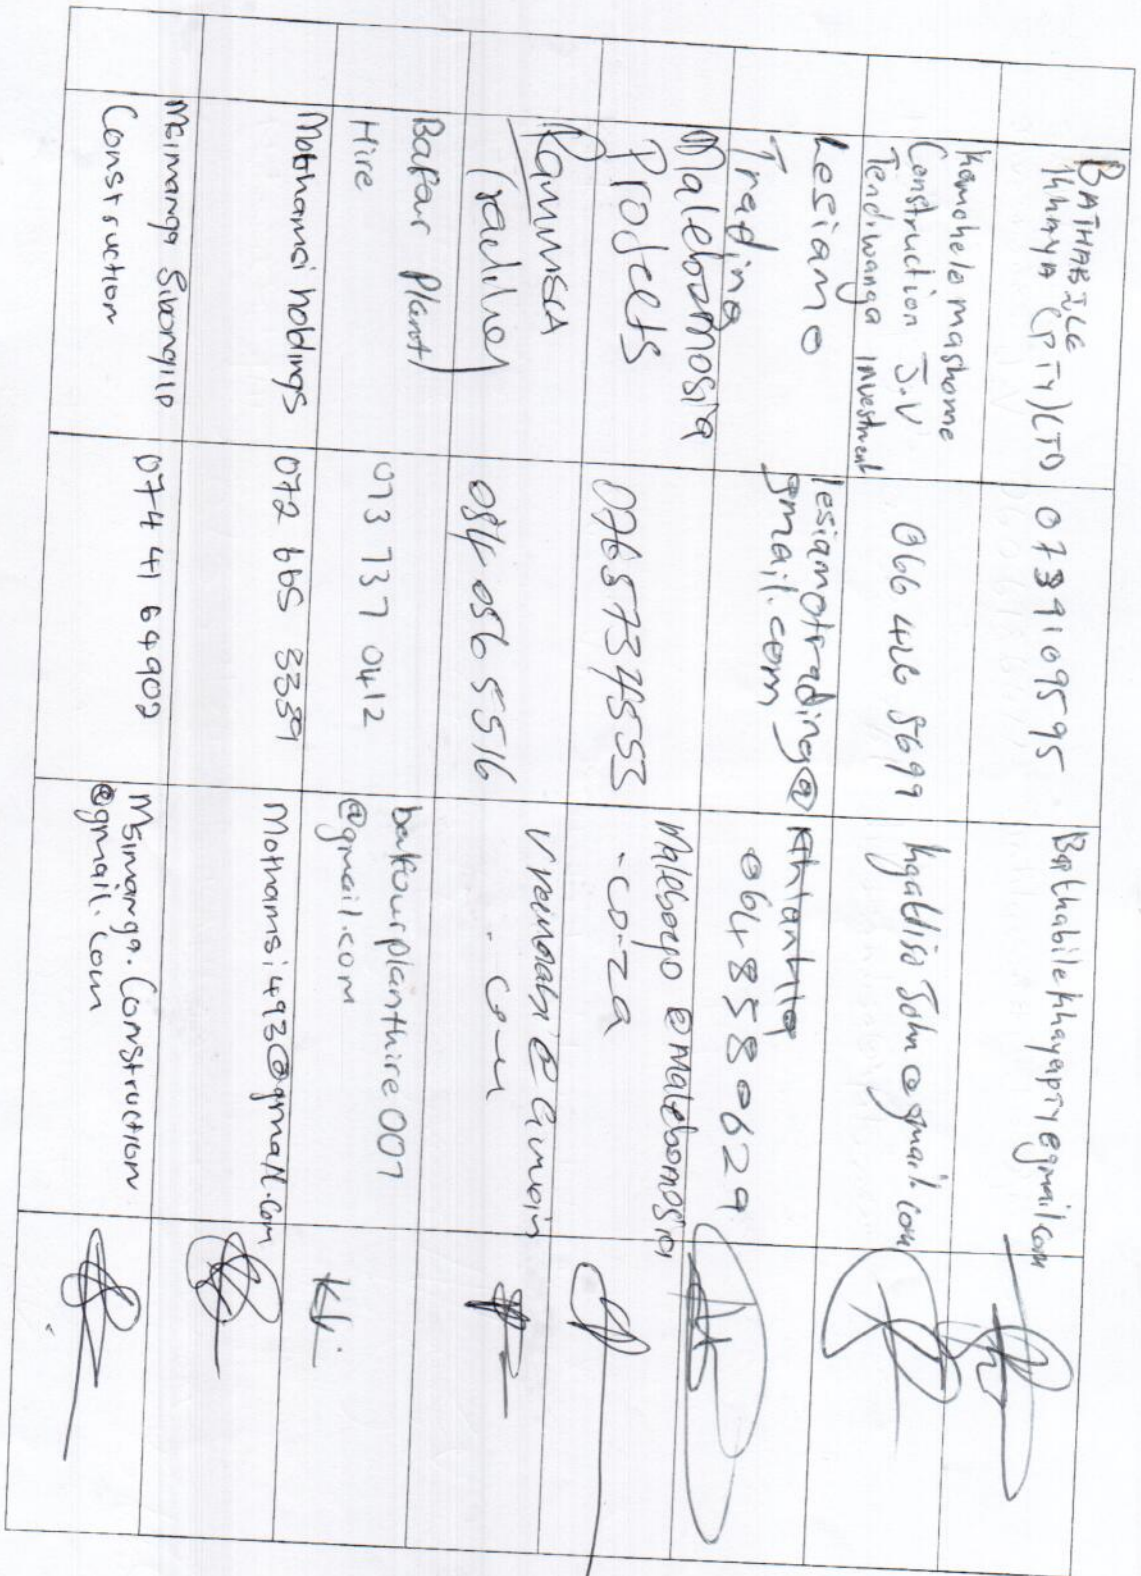 BATHABILE
Khhaya (PTY) LTD
0739109595
Bathabilekhayapty@gmail.com
Kamohelo mashome
Construction J.V
Tendiwanga investment
066 426 8699
kgalliso John@gmail.com
Lesiamo
Trading
lesiamotrading@
gmail.com
064 858 0629
Malebomosia
Projects
0765734553
Malebogo @malebomosia
.co.za
Ramusa
Trading
084 056 5516
Bafar Plant
Hire
073 737 0412
balfourplanthire007
@gmail.com
Mothamsi holdings
072 665 3339
Mothamsi493@gmail.com
Msimanga Sibongile
Construction
074 41 64902
Msimanga.Construction
@gmail.com